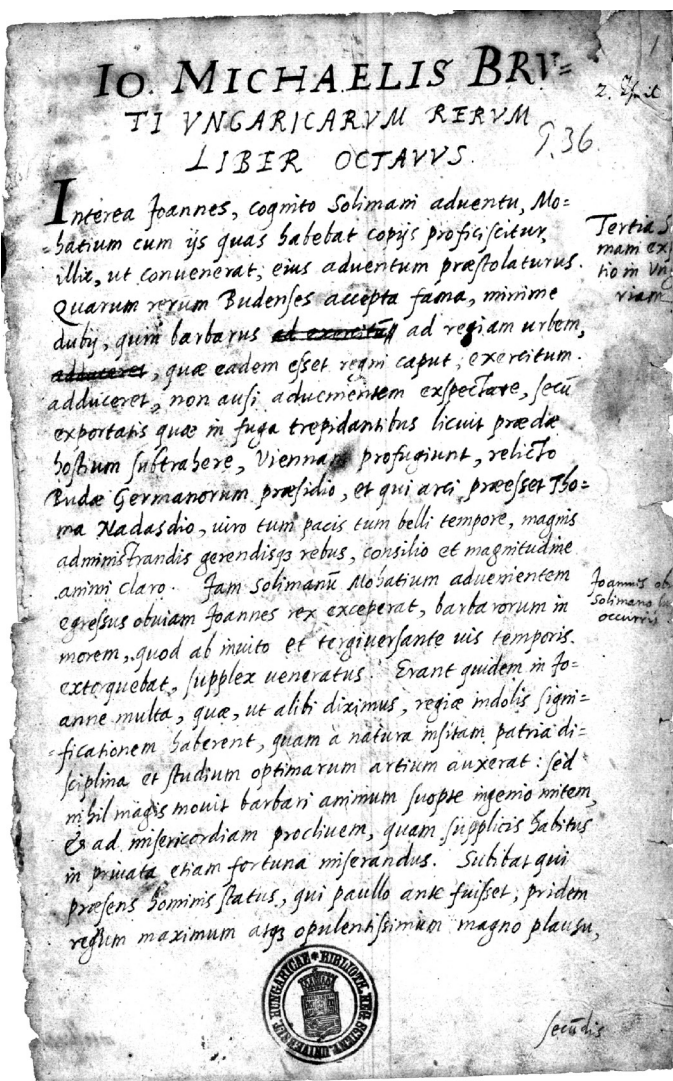 IO. MICHAELIS BRV=
TI VNGARICARVM RERVM
LIBER OCTAVVS.
1
936
Interea Joannes, cognito Solimani aduentu, Mo=
=hatium cum ijs quas habebat copijs proficiscitur,
illic, ut conuenerat, eius aduentum præstolaturus.
Quarum rerum Budenses accepta fama, minime
dubij, quin barbarus ad exercitum ad regiam urbem,
adduceret, quæ eadem esset regni caput, exercitum
adduceret, non ausi aduenientem expectare, secū
exportatis quæ in fuga trepidantibus licuit prædæ
hostium subtrahere, Viennam profugiunt, relicto
Budæ Germanorum præsidio, et qui arci præesset Tho=
ma Nadasdio, uiro tum pacis tum belli tempore, magnis
administrandis gerendisq3 rebus, consilio et magnitudine
animi claro. Jam Solimanū Mohatium aduenientem
egressus obuiam Joannes rex exceperat, barbarorum in
morem, quod ab inuito et tergiuersante uis temporis
extorquebat, supplex ueneratus. Erant quidem in Jo=
anne multa, quæ, ut alibi diximus, regiæ indolis signi=
=ficationem haberent, quam à natura insitam patria di=
sciplina et studium optimarum artium auxerat: sed
nihil magis mouit barbari animum suopte ingenio mitem,
& ad misericordiam procliuem, quam supplicis habitus
in priuata etiam fortuna miserandus. Subibat qui
præsens hominis status, qui paullo ante fuisset, pridem
regum maximum atq3 opulentissimum magno plausu,
secūdis
Tertia S
mani ex
tio in Vng
riam
Joannis ob
Solimano
occurrit
VNIVERSIT. HUNGARICAE * BIBLIOTH. REG. SCIENT.